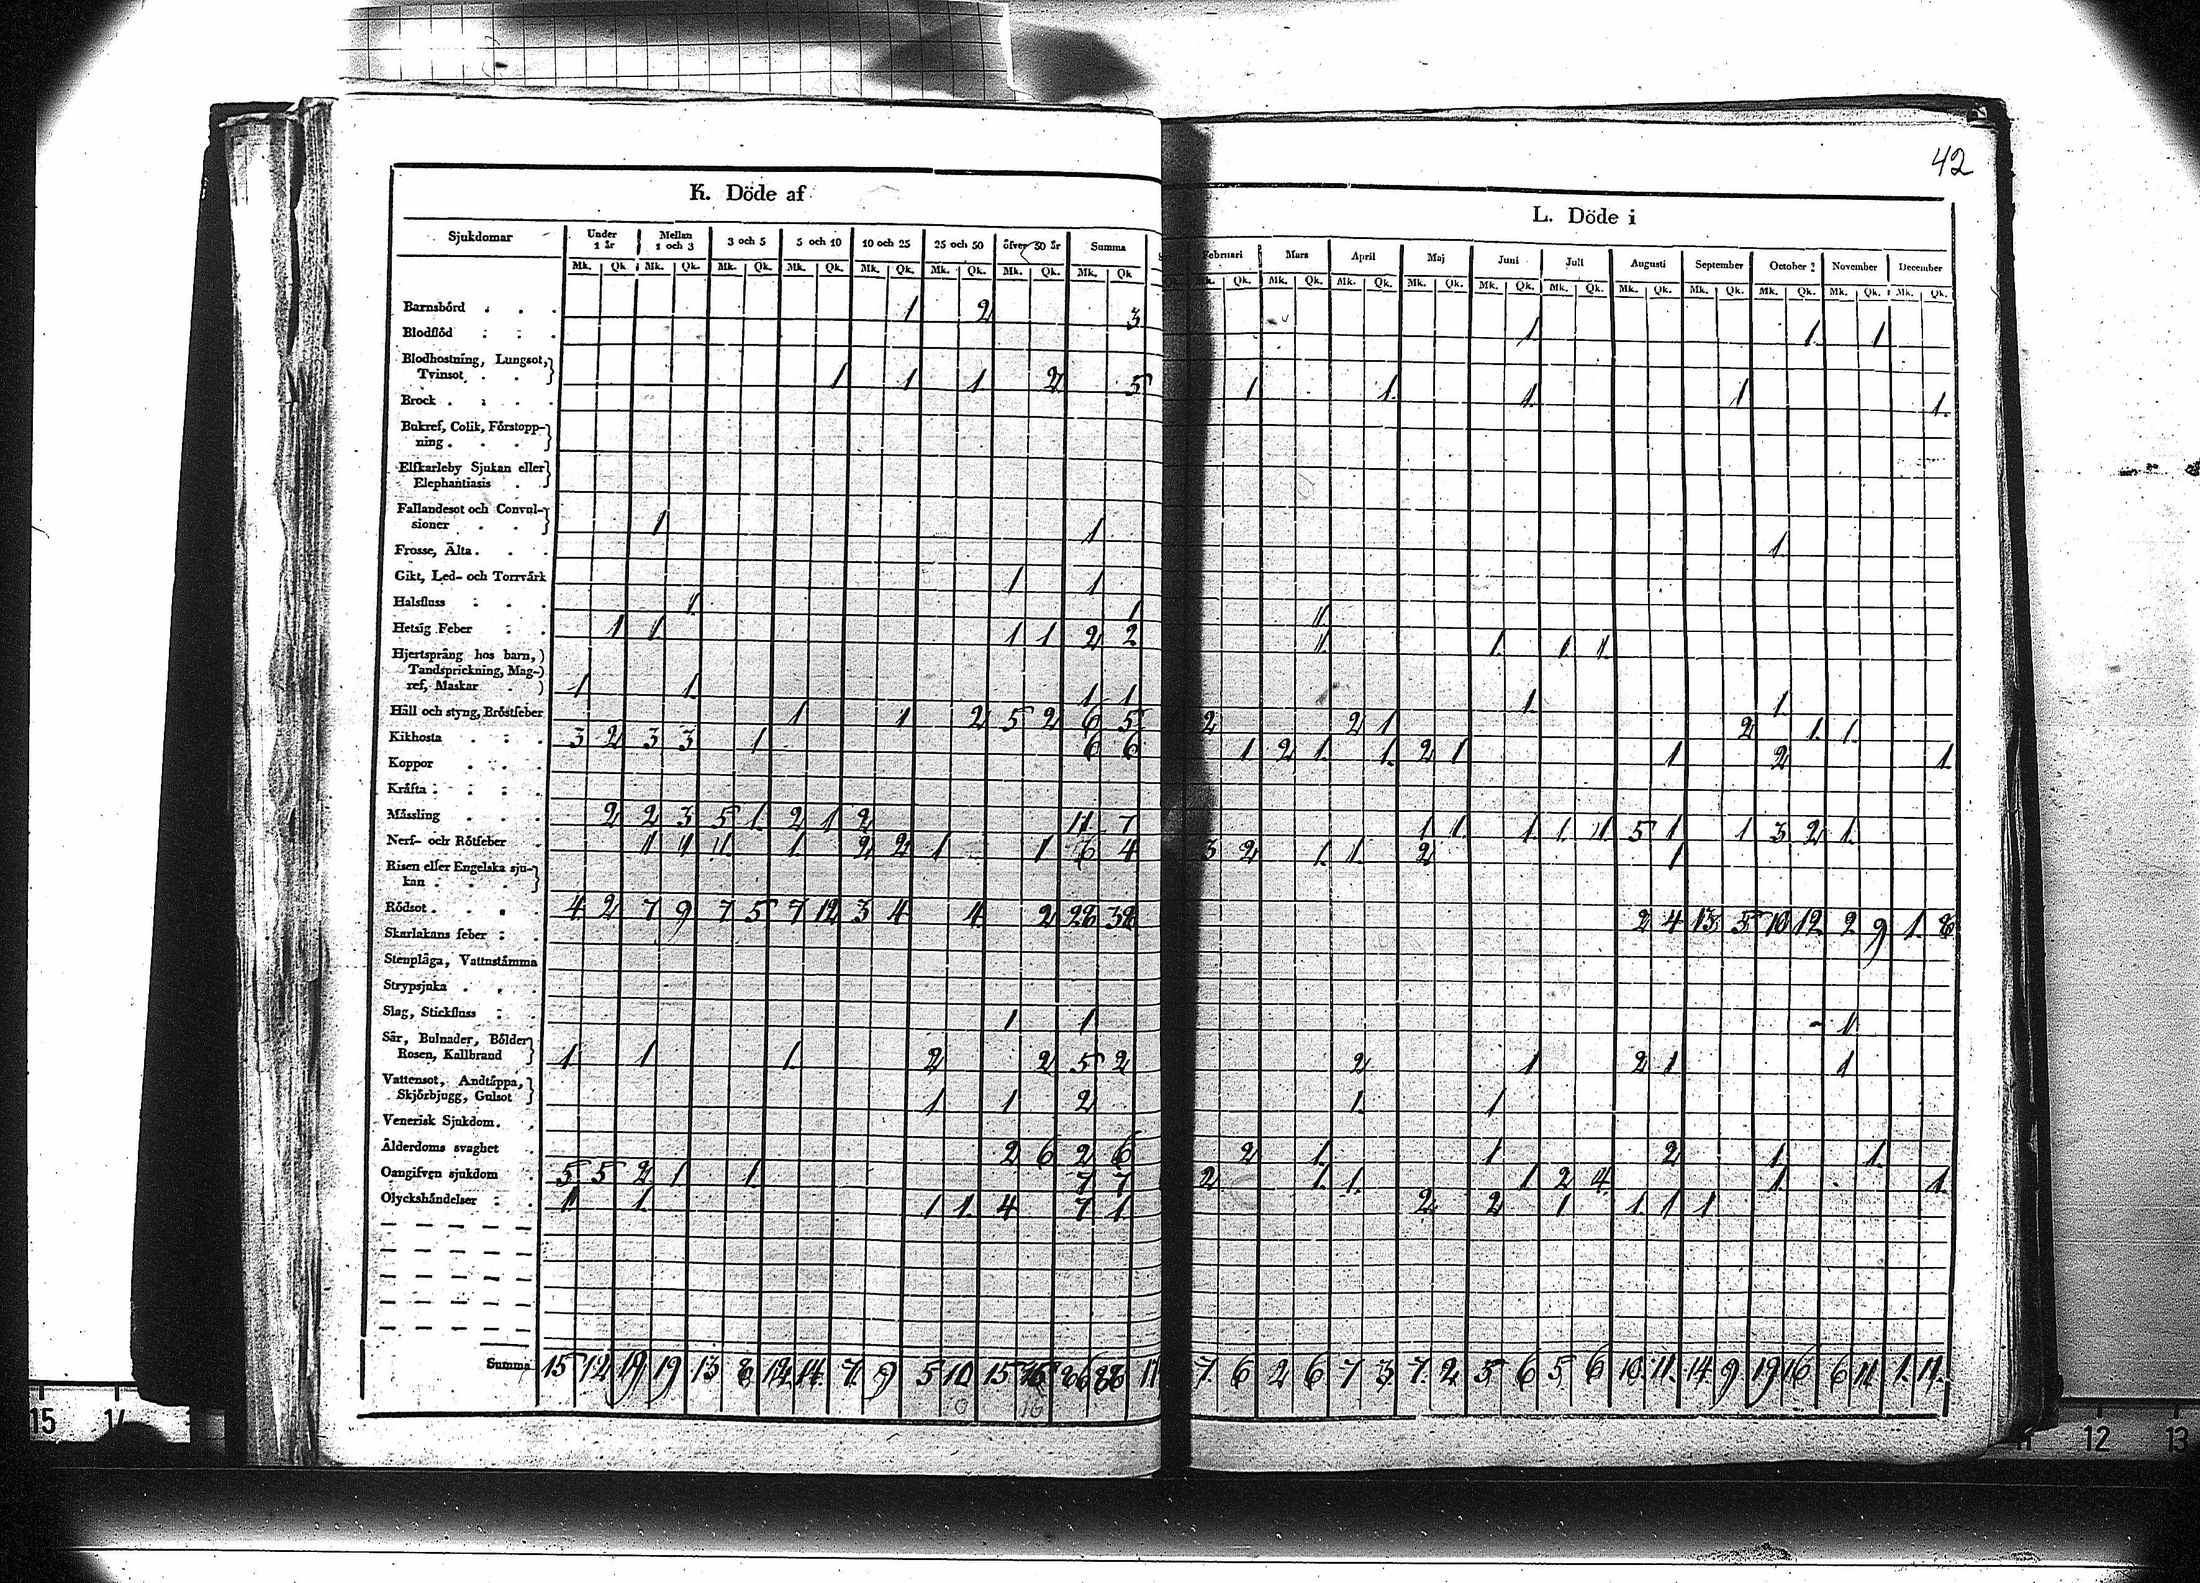 42
K. Döde af
L. Döde i
Sjukdomar Under 1 år Mellan 1 och 3 3 och 5 5 och 10 10 och 25 25 och 50 öfver 50 år Summa
Februari Mars April Maj Juni Juli Augusti September October November December
Mk. Qk. Mk. Qk. Mk. Qk. Mk. Qk. Mk. Qk. Mk. Qk. Mk. Qk. Mk. Qk
Qk. Mk. Qk. Mk. Qk. Mk. Qk. Mk. Qk. Mk. Qk. Mk. Qk. Mk. Qk. Mk. Qk. Mk. Qk. Mk. Qk. Mk. Qk.
Barnsbörd 1 2 3 1 1 1
Blodflöd
Blodhostning, Lungsot,
Tvinsot 1 1 1 2 5 1 1 1 1 1
Brock
Bukref, Colik, Förstopp-
ning
Elfkarleby Sjukan eller
Elephantiasis
Fallandesot och Convul-
sioner 1 1 1
Frosse, Älta
Gikt, Led- och Torrvärk 1 1
Halsfluss 1 1 1
Hetsig Feber 1 1 1 1 2 2 1 1 1 1
Hjertsprång hos barn,
Tandsprickning, Mag-
ref, Maskar 1 1 1 1 1 1
Håll och styng, Bröstfeber 1 1 2 5 2 6 5 2 2 1 2 1 1
Kikhosta 3 2 3 3 1 6 6 1 2 1 1 2 1 1 2 1
Koppor
Kräfta
Mässling 2 2 3 5 1 2 1 2 11 7 1 1 1 1 1 5 1 1 3 2 1
Nerf- och Rötfeber 1 1 1 1 2 2 1 1 6 4 3 2 1 1 2 1
Risen eller Engelska sju-
kan
Rödsot 4 2 7 9 7 5 7 12 3 4 4 2 28 38 2 4 13 5 10 12 2 9 1 8
Skarlakans feber
Stenplåga, Vattnstämma
Strypsjuka
Slag, Stickfluss 1 1 1
Sår, Bulnader, Bölder
Rosen, Kallbrand 1 1 1 2 2 5 2 2 1 2 1 1
Vattensot, Andtäppa,
Skjörbjugg, Gulsot 1 1 2 1 1
Venerisk Sjukdom
Ålderdoms svaghet 2 6 2 6 2 1 1 2 1 1
Oangifven sjukdom 5 5 2 1 1 7 7 2 1 1 1 2 4 1 1
Olyckshändelser 1 1 1 1 4 7 1 2 2 1 1 1 1
Summa 15 12 19 19 13 8 12 14 7 9 5 10 15 16 86 88 7 6 2 6 7 3 7 2 5 6 5 6 10 11 14 9 19 16 6 11 1 11
15 14 11 12 13